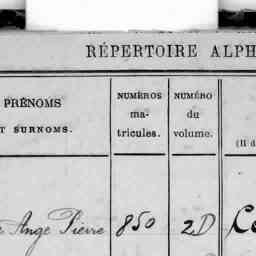 RÉPERTOIRE ALPH
PRÉNOMS
T SURNOMS.
NUMÉROS
ma-
tricules.
NUMÉRO
du
volume.
(Il d
Ange Pierre 850 2D